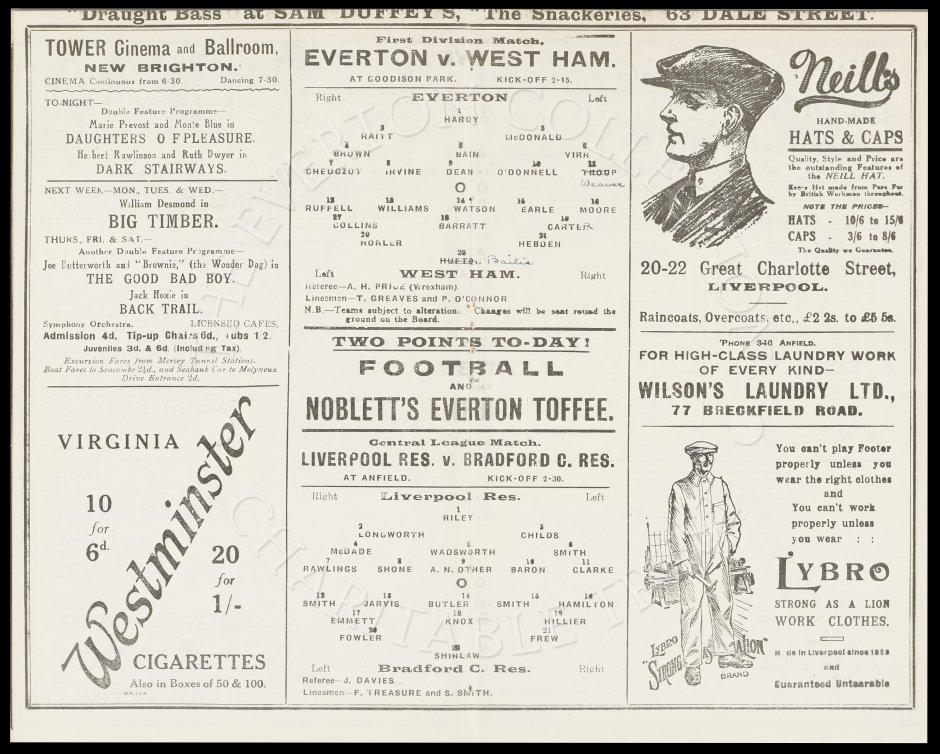 "Draught Bass" at SAM DUFFEY'S, "The Snackeries, 63 DALE STREET.
TOWER Cinema and Ballroom,
NEW BRIGHTON.
CINEMA Continuous from 6-30. Dancing 7-30.
TO-NIGHT—
Double Feature Programme—
Marie Prevost and Monte Blue in
DAUGHTERS OF PLEASURE.
Herbert Rawlinson and Ruth Dwyer in
DARK STAIRWAYS.
NEXT WEEK—MON., TUES. & WED.—
William Desmond in
BIG TIMBER.
THURS., FRI. & SAT.—
Another Double Feature Programme—
Joe Butterworth and "Brownie," (the Wonder Dog) in
THE GOOD BAD BOY.
Jack Hoxie in
BACK TRAIL.
Symphony Orchestra. LICENSED CAFES.
Admission 4d. Tip-up Chairs 6d., Tubs 1/2.
Juveniles 3d. & 6d. (Including Tax).
Excursion Fares from Mersey Tunnel Stations.
Boat Fares to Seacombe 2½d., and Seabank Car to Molyneux
Drive Entrance 2d.
VIRGINIA
10
for
6d.
Westminster
20
for
1/-
CIGARETTES
Also in Boxes of 50 & 100.
First Division Match.
EVERTON v. WEST HAM.
AT GOODISON PARK. KICK-OFF 2-15.
Right EVERTON Left
1
HARDY
RAITT McDONALD
BROWN BAIN VIRR
7 8 9 10 11
CHEDGZOY IRVINE DEAN O'DONNELL TROUP
Weaver
O
RUFFELL WILLIAMS WATSON EARLE MOORE
COLLINS BARRATT CARTER
HORLER HEBDEN
HUFTON Bailie
Left WEST HAM. Right
Referee—A. H. PRICE (Wrexham).
Linesmen—T. GREAVES and P. O'CONNOR
N.B.—Teams subject to alteration. Changes will be sent round the
ground on the Board.
TWO POINTS TO-DAY!
FOOTBALL
AND
NOBLETT'S EVERTON TOFFEE.
Central League Match.
LIVERPOOL RES. v. BRADFORD C. RES.
AT ANFIELD. KICK-OFF 2-30.
Right Liverpool Res. Left
1
RILEY
2 3
LONGWORTH CHILDS
4 5 6
McDADE WADSWORTH SMITH
7 8 9 10 11
RAWLINGS SHONE A. N. OTHER BARON CLARKE
O
12 13 14 15 16
SMITH JARVIS BUTLER SMITH HAMILTON
17 18 19
EMMETT KNOX HILLIER
20 21
FOWLER FREW
SHIRLAW
Left Bradford C. Res. Right
Referee—J. DAVIES.
Linesmen—F. TREASURE and S. SMITH.
Neill's
HAND-MADE
HATS & CAPS
Quality, Style and Price are
the outstanding Features of
the NEILL HAT.
Every Hat made from Pure Fur
by British Workmen throughout.
NOTE THE PRICES—
HATS - 10/6 to 15/6
CAPS - 3/6 to 8/6
The Quality we Guarantee.
20-22 Great Charlotte Street,
LIVERPOOL.
Raincoats, Overcoats, etc., £2 2s. to £5 5s.
'PHONE 346 ANFIELD.
FOR HIGH-CLASS LAUNDRY WORK
OF EVERY KIND—
WILSON'S LAUNDRY LTD.,
77 BRECKFIELD ROAD.
You can't play Footer
properly unless you
wear the right clothes
and
You can't work
properly unless
you wear : :
LYBRO
STRONG AS A LION
WORK CLOTHES.
Made in Liverpool since 1858
and
Guaranteed Untearable
LYBRO
"STRONG AS A LION"
BRAND
EVERTON COLLECTION
CHARITABLE TRUST